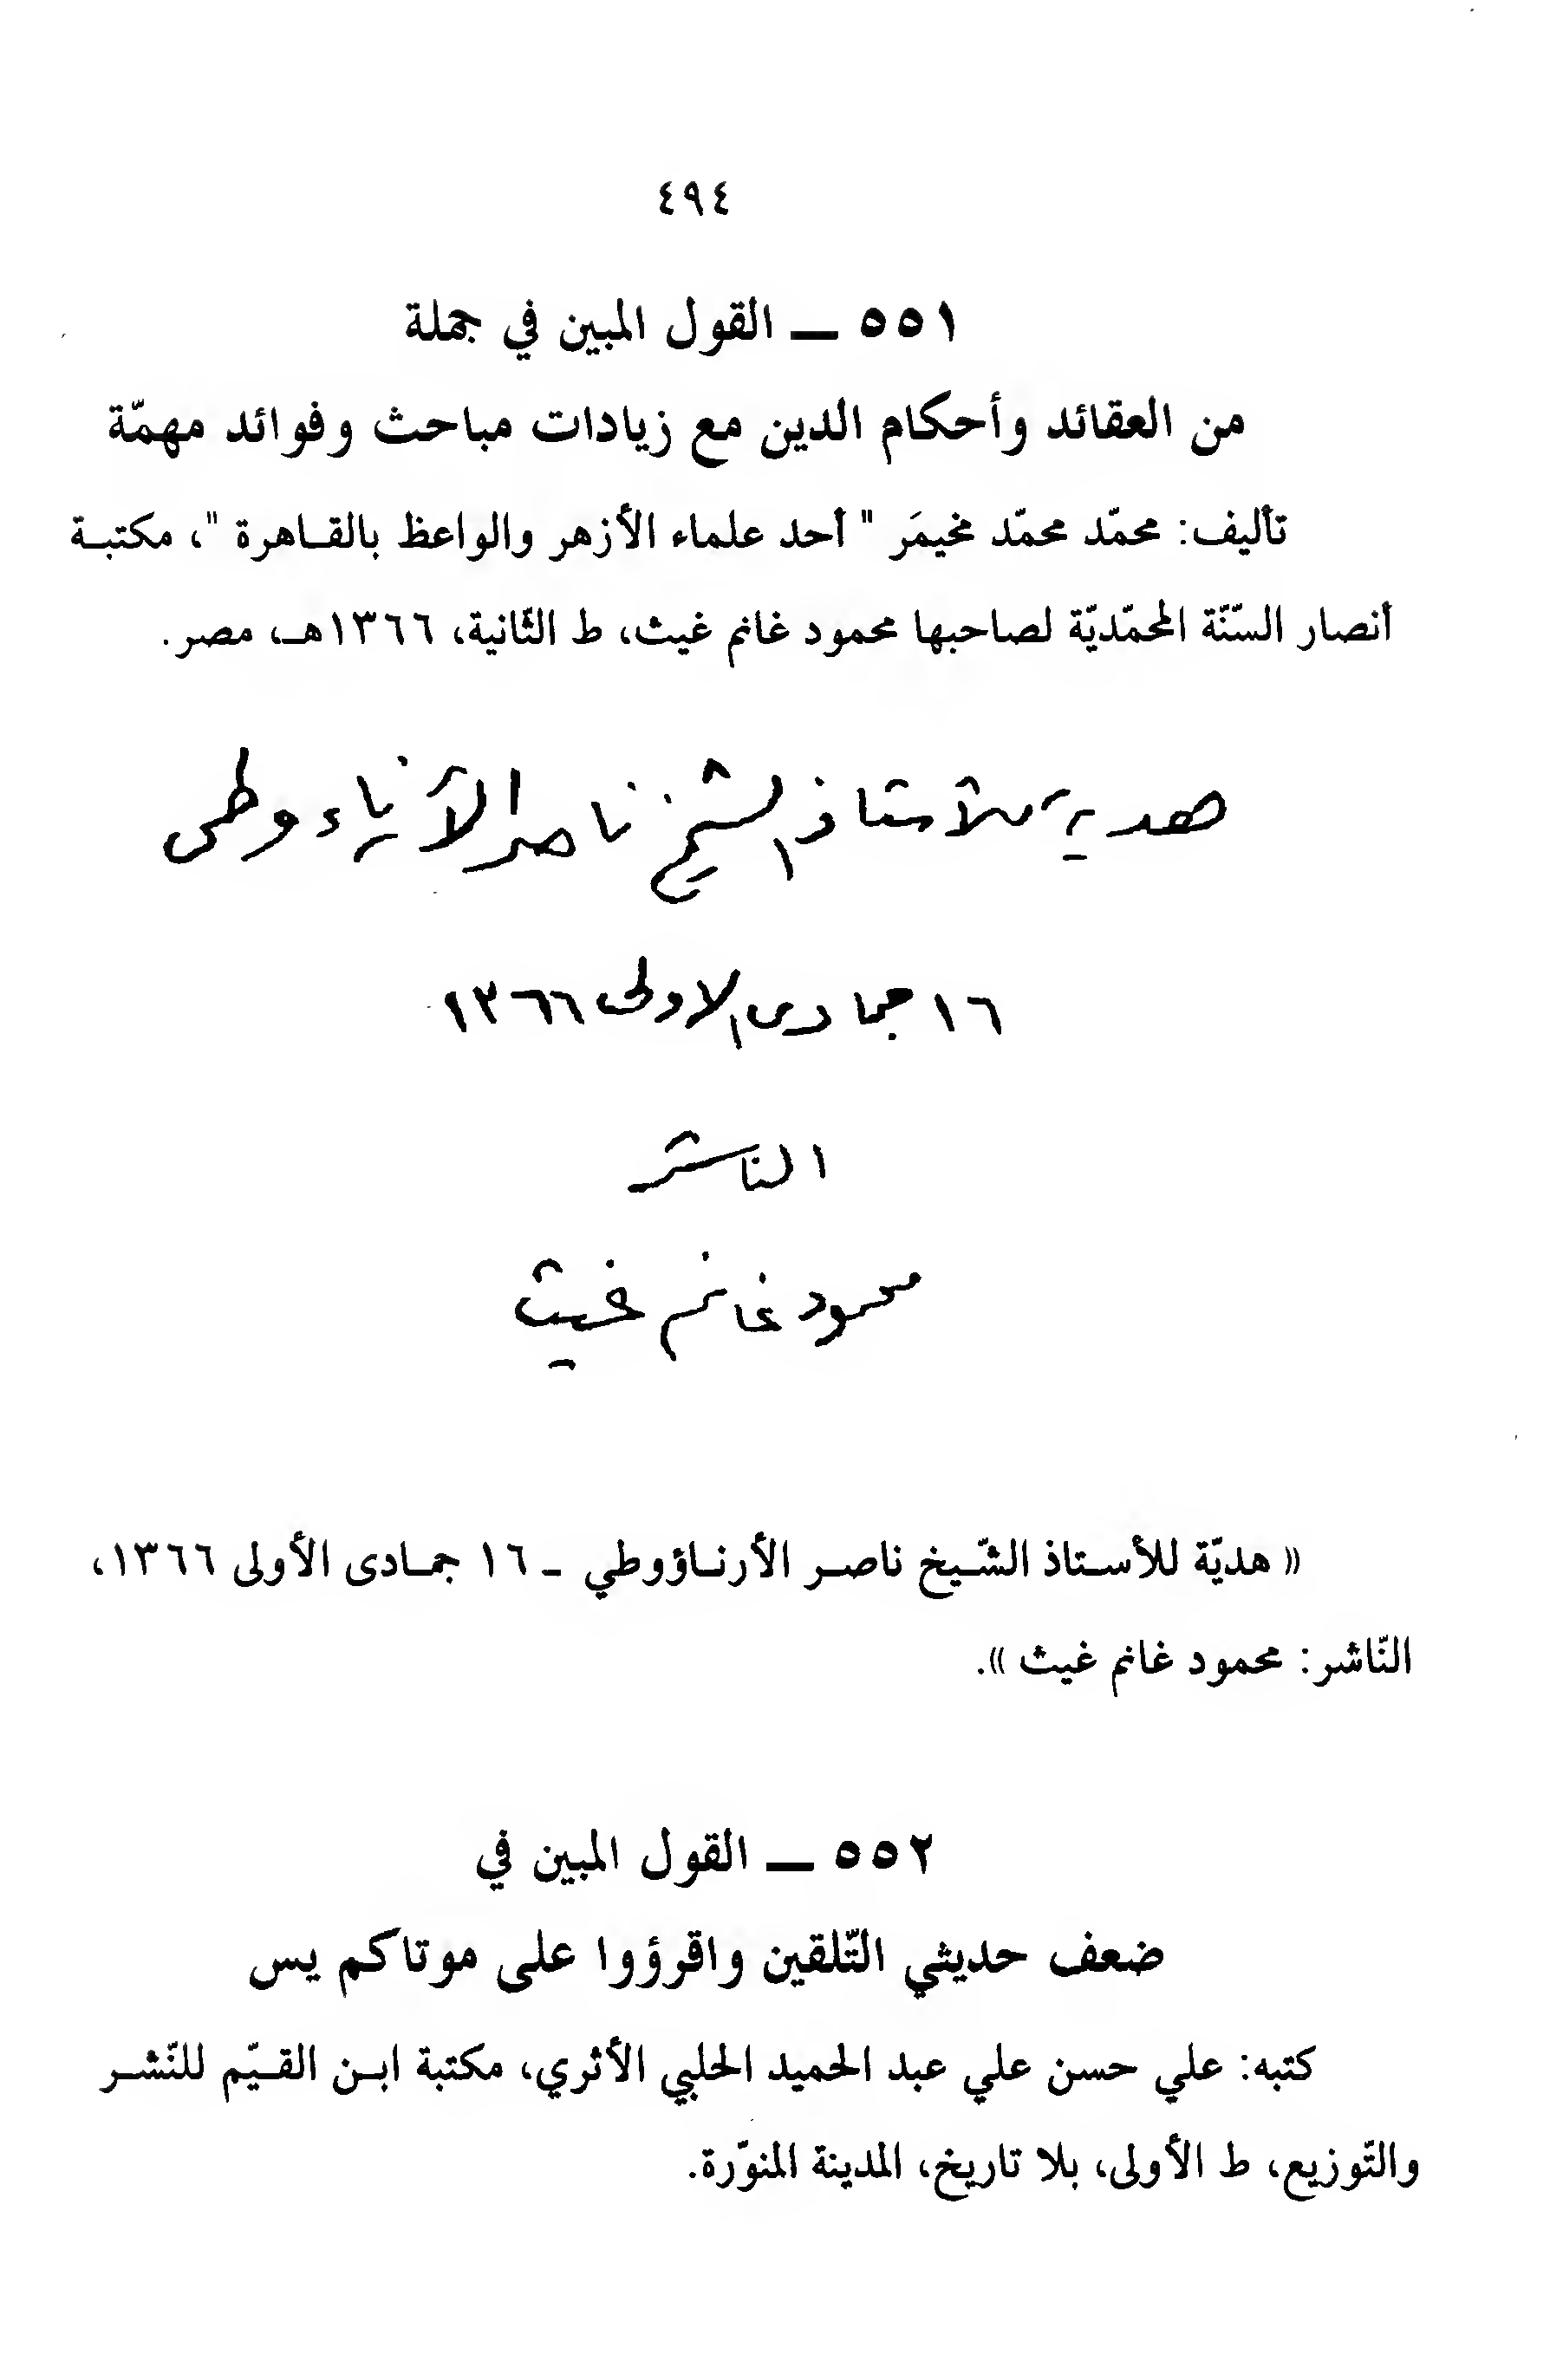 ٤٩٤
٥٥١ ــ القول المبين في جملة
من العقائد وأحكام الدين مع زيادات مباحث وفوائد مهمّة
تأليف: محمّد محمّد مخيمَر " أحد علماء الأزهر والواعظ بالقاهرة "، مكتبة
أنصار السّنّة المحمّديّة لصاحبها محمود غانم غيث، ط الثّانية، ١٣٦٦هـ، مصر.
هدية للأستاذ الشيخ ناصر الأرناءوطى
١٦ جمادى الاولى ١٣٦٦
الناشر
محمود غانم غيث
« هديّة للأستاذ الشّيخ ناصر الأرناؤوطي - ١٦ جمادى الأولى ١٣٦٦،
النّاشر: محمود غانم غيث ».
٥٥٢ ــ القول المبين في
ضعف حديثي التّلقين واقرؤوا على موتاكم يس
كتبه: علي حسن علي عبد الحميد الحلبي الأثري، مكتبة ابن القيّم للنّشر
والتّوزيع، ط الأولى، بلا تاريخ، المدينة المنوّرة.